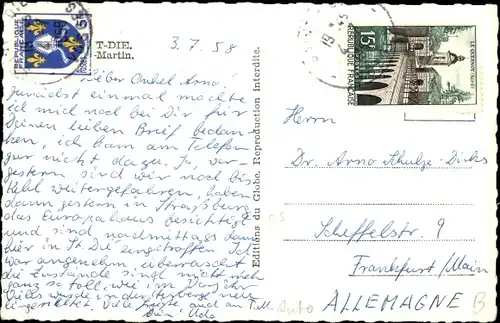 REPUBLIQUE FRANÇAISE
T-DIE.
-Martin.
3.7.58
Lieber Onkel Arno!
zunächst einmal möchte
ich mich noch bei Dir für
Deinen lieben Brief bedan-
ken, ich kam am Telefon
gar nicht dazu. Ja, vor-
gestern sind wir noch bis
Kehl weitergefahren, haben
dann gestern in Straßburg
das Europahaus besichtigt
und sind nachmittags dann
hier in St Die eingetroffen. Ich
war angenehm überrascht
die Zustände sind nicht mehr
ganz so toll, wie im Vorjahr
Vieles wurde in der
Viele Grüße auch an T.
Dein Udo
Editions du Globe. Reproduction interdite.
15F
LE QUESNOY (NORD)
REPUBLIQUE FRANÇAISE
Herrn
Dr. Arno Schulze-Dicks
Scheffelstr. 9
Frankfurt/Main
ALLEMAGNE
B